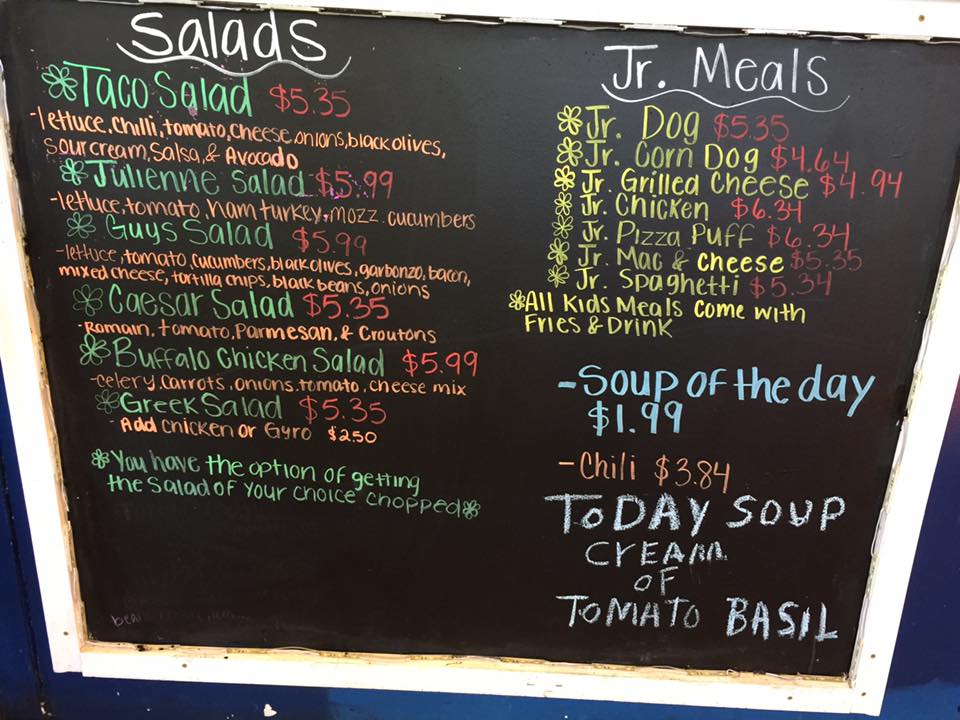 Salads
Taco Salad $5.35
-lettuce, chilli, tomato, cheese, onions, black olives,
sour cream, Salsa, & Avocado
Julienne Salad $5.99
-lettuce, tomato, ham turkey, mozz. cucumbers
Guys Salad $5.99
-lettuce, tomato, cucumbers, black olives, garbonzo, bacon,
mixed cheese, tortilla chips, black beans, onions
Caesar Salad $5.35
-Romain, tomato, Parmesan, & Croutons
Buffalo Chicken Salad $5.99
-celery, carrots, onions, tomato, cheese mix
Greek Salad $5.35
- Add chicken or Gyro $2.50
You have the option of getting
the Salad of your choice chopped
Jr. Meals
Jr. Dog $5.35
Jr. Corn Dog $4.64
Jr. Grilled Cheese $4.94
Jr. Chicken $6.34
Jr. Pizza Puff $6.34
Jr. Mac & Cheese $5.35
Jr. Spaghetti $5.34
All Kids Meals come with
Fries & Drink
-Soup of the day
$1.99
-Chili $3.84
ToDAY SOUP
CREAM
OF
TOMATO BASIL